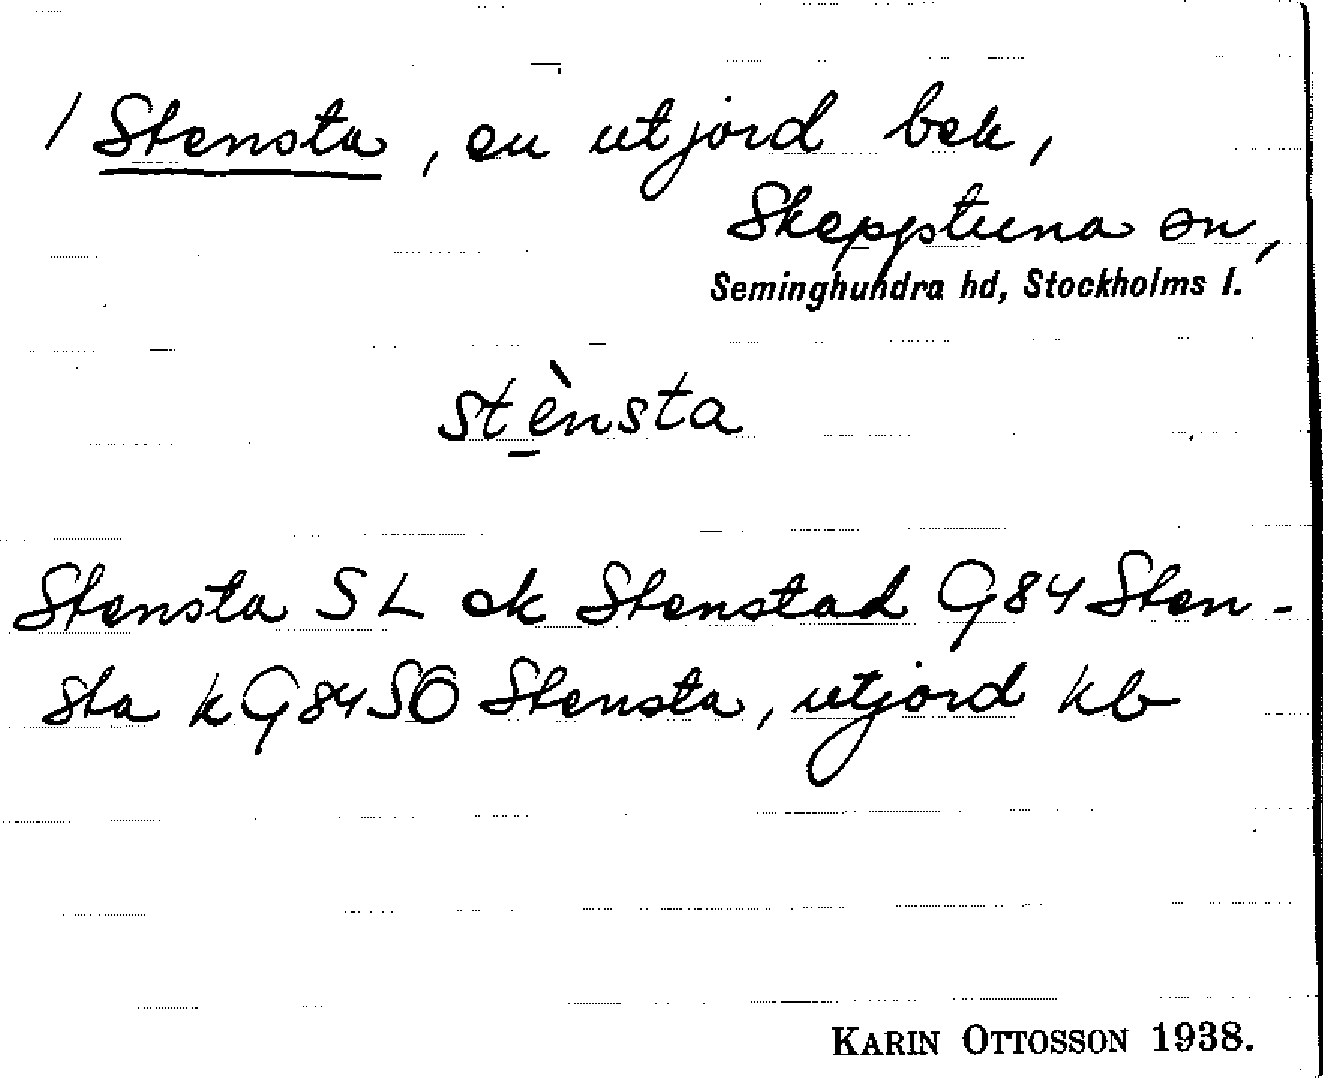 / Stensta, en utjord bek,
Skepptuna sn,
Seminghundra hd, Stockholms l.
stènsta
Stensta SL ek Stenstad G84 Sten-
sta kG84SO Stensta, utjord kb
KARIN OTTOSSON 1938.